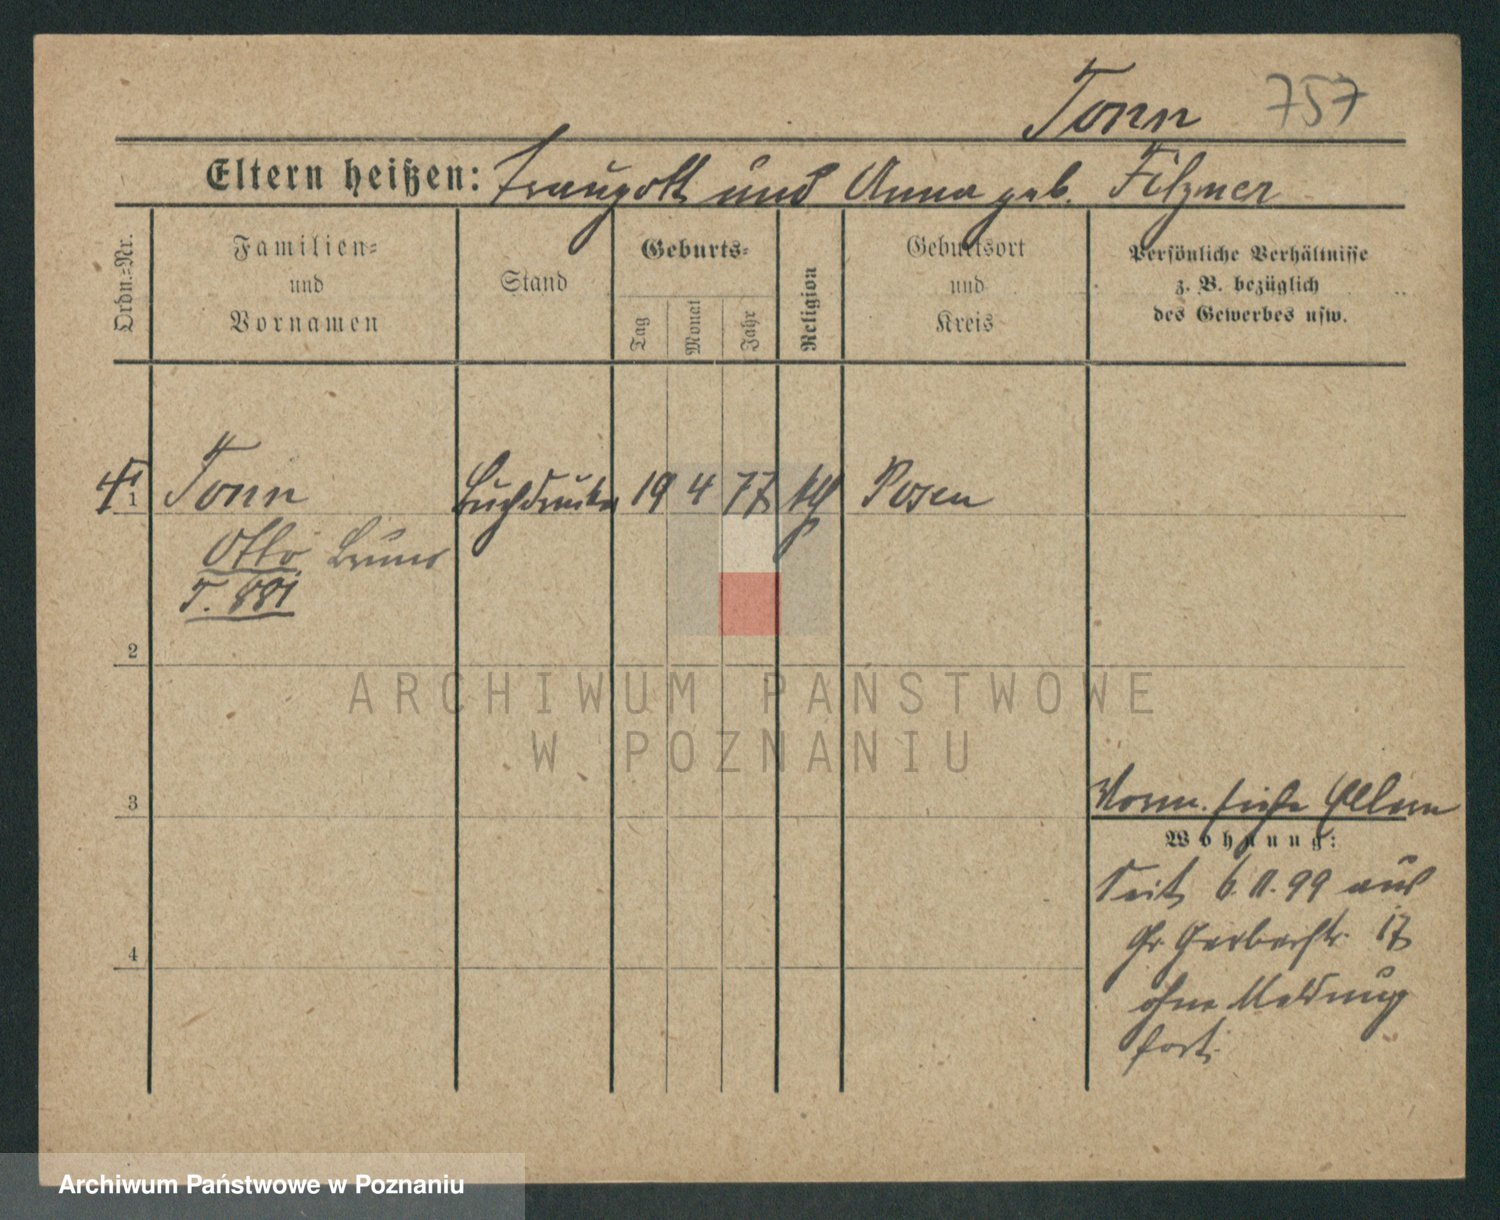 Tonn 757
Eltern heißen: Traugott und Anna geb. Filzner
Ordn.=Nr.
Familien=
und
Vornamen
Stand
Geburts=
Tag
Monat
Jahr
Religion
Geburtsort
und
Kreis
Persönliche Verhältnisse
z. B. bezüglich
des Gewerbes usw.
1 Tonn Buchdrucker 19 4 77 kth Posen
Otto Bruno
T. 881
2
ARCHIWUM PAŃSTWOWE
W POZNANIU
3
Vorm. siehe Eltern
Wohnung:
Seit 6.11.99 aus
Gr Gerberstr. 17
4
ohne Meldung
fort.
Archiwum Państwowe w Poznaniu